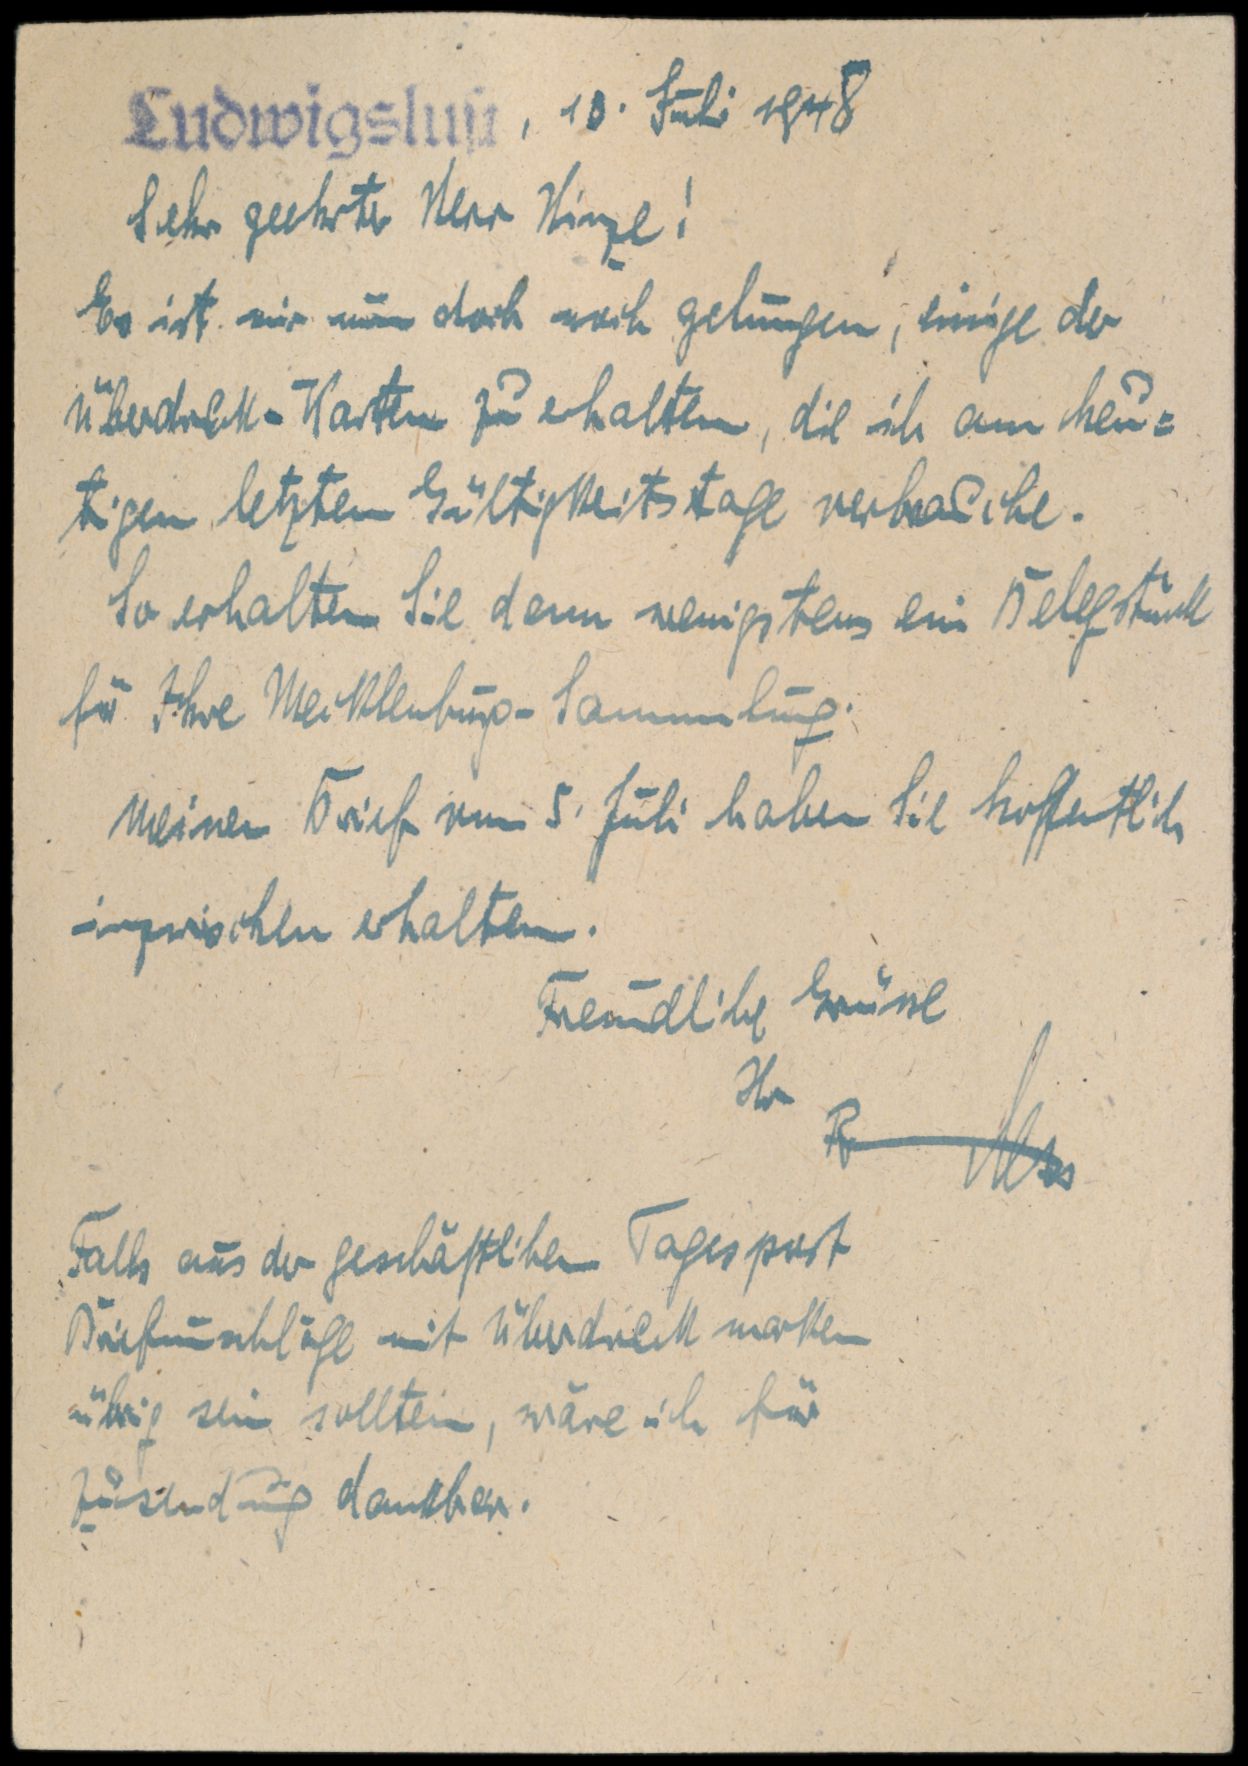 Ludwigslust, 10. Juli 1948
Sehr geehrter Herr Hinze!
Es ist mir nun doch noch gelungen, einige der
Überdruck-Karten zu erhalten, die ich am heu=
tigen letzten Gültigkeitstage verbrauche.
So erhalten Sie denn wenigstens ein Belegstück
für Ihre Mecklenburg-Sammlung.
Meinen Brief vom 5. Juli haben Sie hoffentlich
inzwischen erhalten.
Freundliche Grüsse
Ihr
Falls aus der geschäftlichen Tagespost
Briefumschläge mit Überdruckmarken
übrig sein sollten, wäre ich für
Zusendung dankbar.